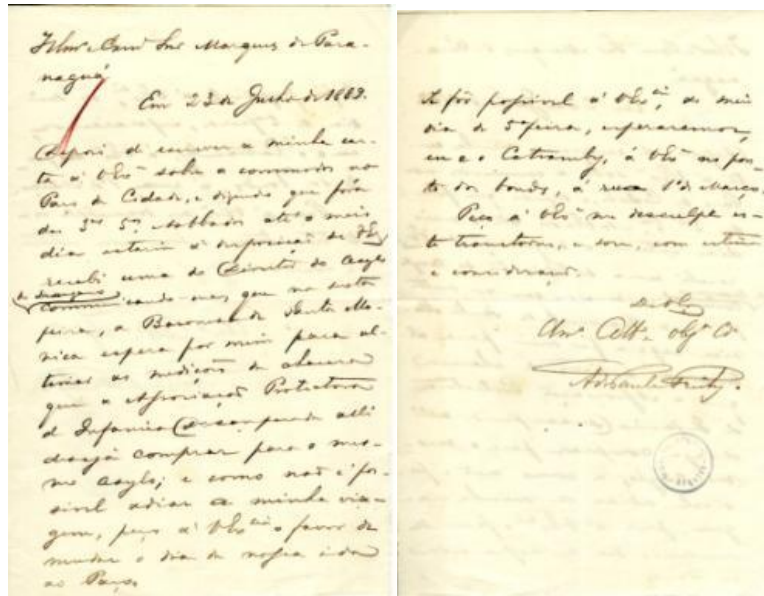 Illmo e Exmo Snr Marquez de Para-
naguá
Em 23 de Junho de 1889.
Depois de escrever a minha car-
ta á VExa sobre a commodos no
Paço da Cidade, e dizendo que fóra
das 3as 5as Sabbados até o meio
dia estaria á disposição de VExa
recebi uma do Director do Asylo
communicando-me, que na sexta
feira, a Baroneza de Santa Mo-
nica espera por mim para al-
terar as medições da chacara
que a Associação Protectora
da Infancia Desamparada alli
deseja comprar para o mes-
mo Asylo; e como não é pos-
sivel adiar a minha via-
gem, peço á VExcia o favor de
mudar o dia da nossa ida
ao Paço.
Se fôr possivel á VExcia, ao meio
dia de 5a feira, esperaremos,
eu e o Catramby, á VExa no pon-
to dos bonds, á rua 1o de Março.
Peço á VExa me desculpe es-
te transtorno, e sou, com estima
e consideração.
De VExa
Amo Atto Obro Co